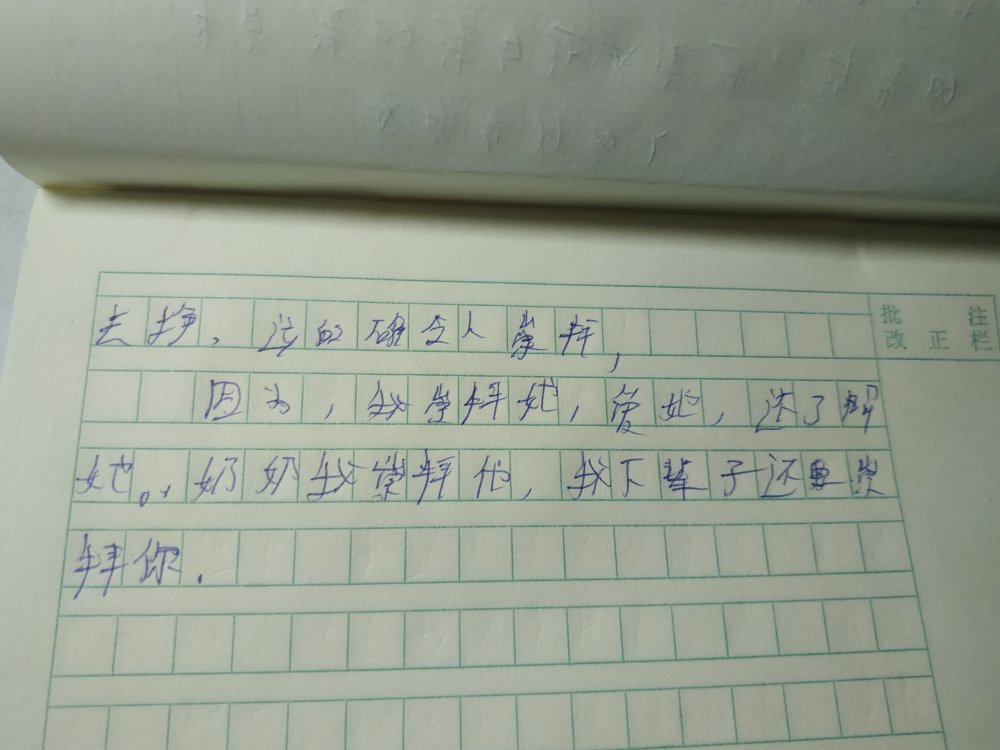 去挣，这的确令人崇拜，
批 注
改 正 栏
因为，我崇拜她，爱她，还了解
她。，奶奶我崇拜他，我下辈子还要崇
拜你．